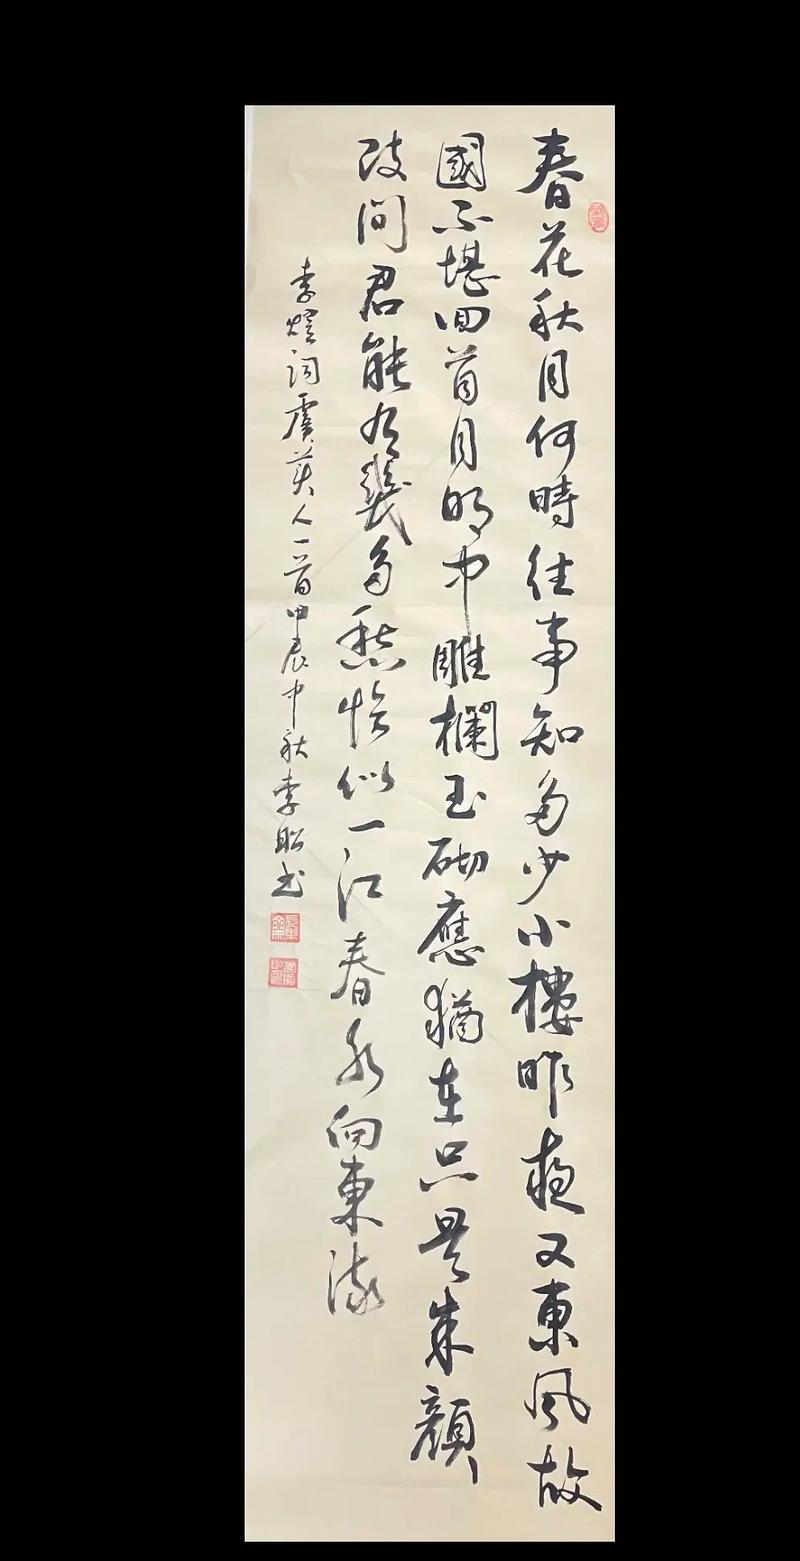 春花秋月何時往事知多少小樓昨夜又東風故
國不堪回首月明中雕欄玉砌應猶在只是朱顏
改問君能有幾多愁恰似一江春水向東流
李煜詞虞美人一首甲辰中秋李书